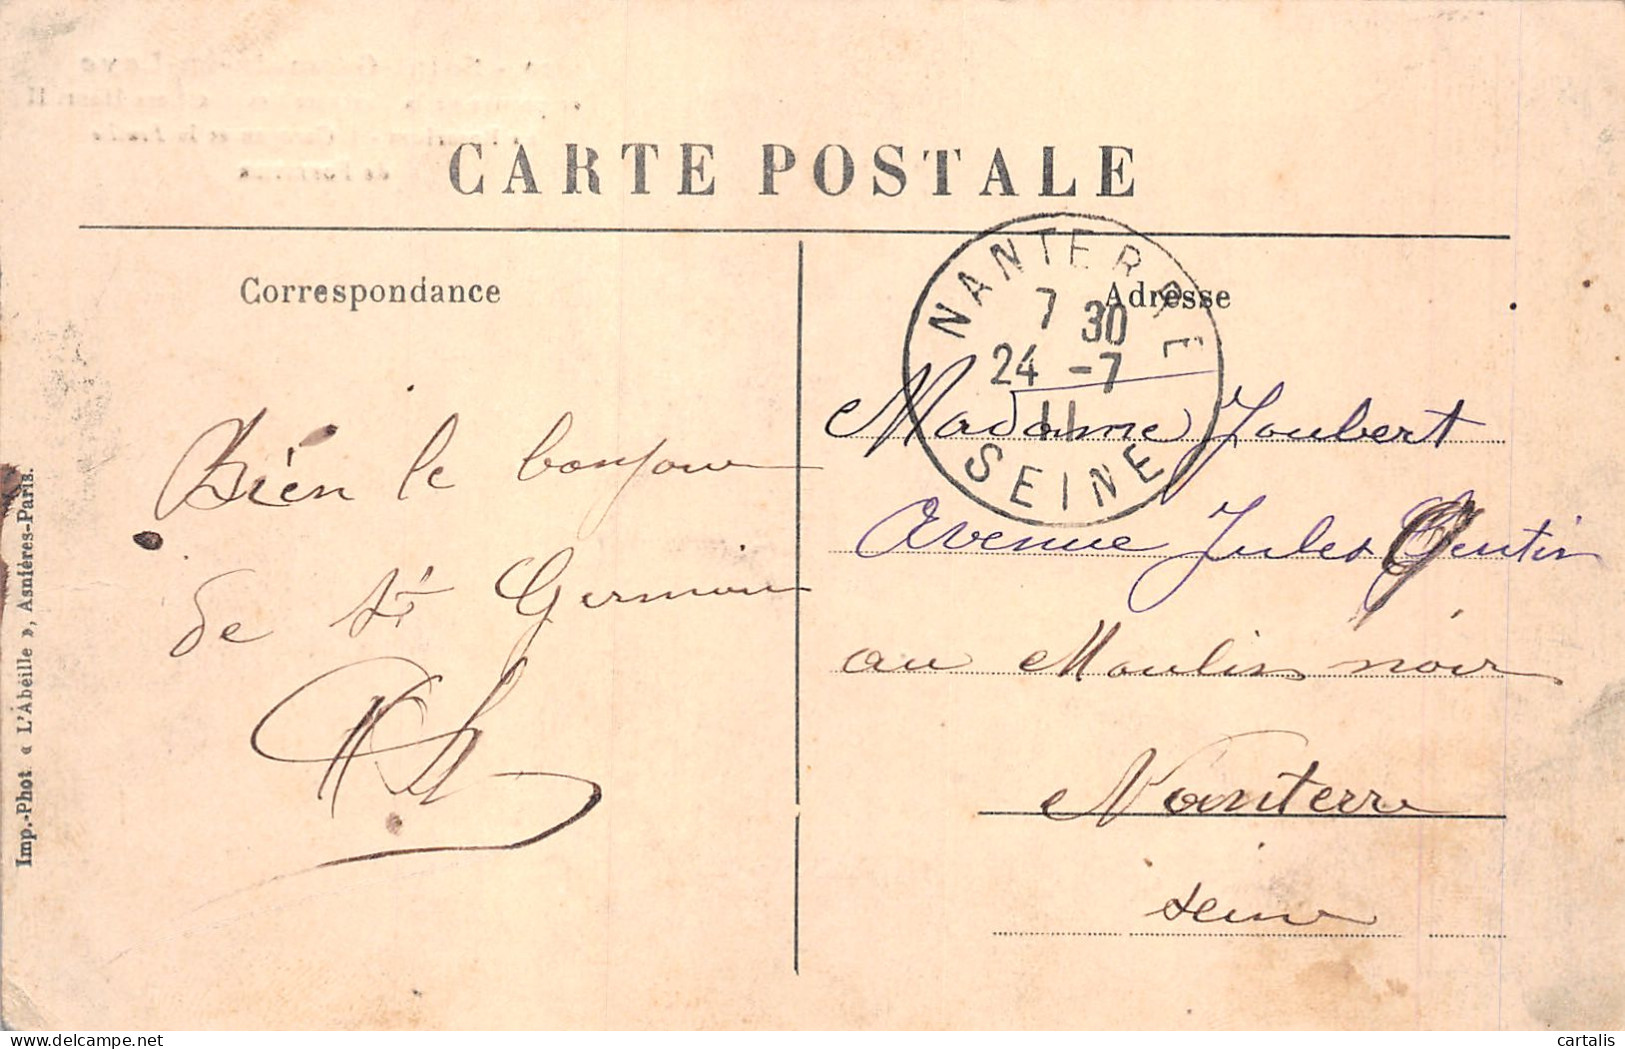 CARTE POSTALE
Correspondance
Adresse
NANTERRE
7 30
24 -7
11
SEINE
Bien le bonjour
de St Germain
Madame Joubert
Avenue Jules Gentin
au Moulin noir
Nanterre
Seine
Imp.-Phot « L'Abeille », Asnières-Paris.
cartalis